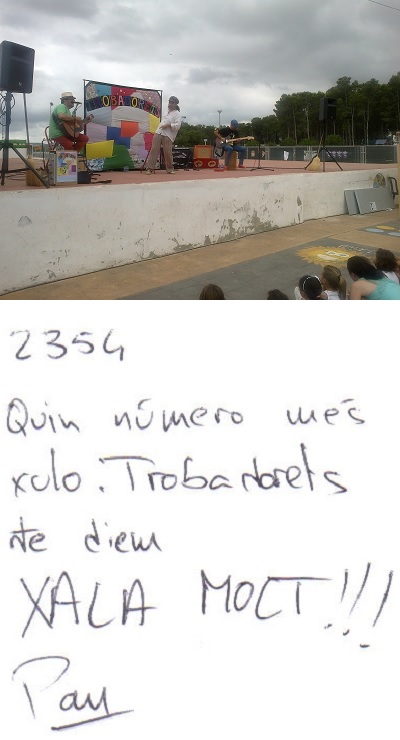 TROBADORETS
2354
Quin número més
xulo. Trobadorets
te diem
XALA MOLT!!!
Pau